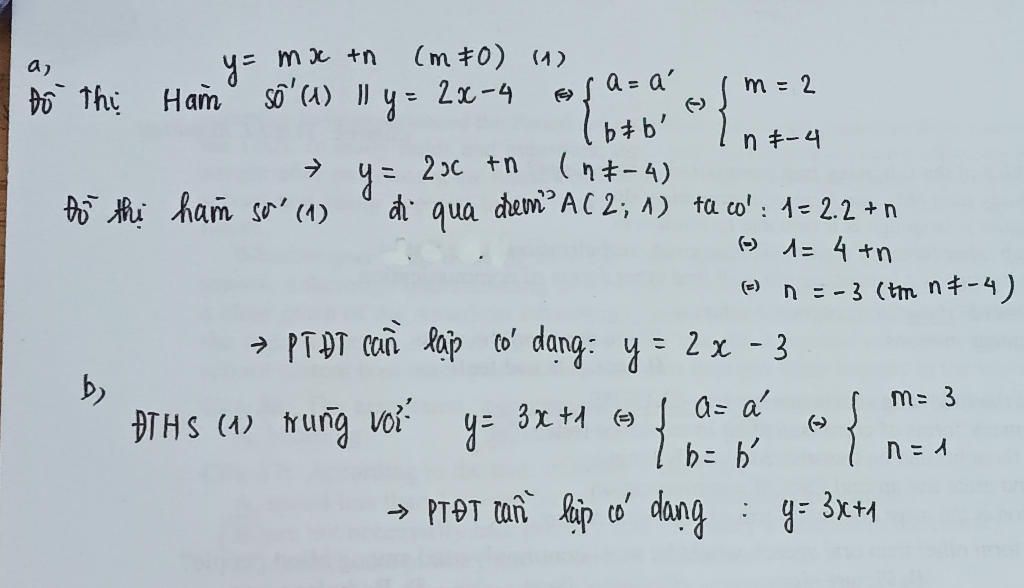 a, y = mx + n (m ≠ 0) (1)
Đồ thị Hàm số (1) // y = 2x - 4 ⇔ { a = a' ⇔ { m = 2
b ≠ b' n ≠ -4
→ y = 2x + n (n ≠ -4)
Đồ thị hàm số (1) đi qua điểm A(2; 1) ta có: 1 = 2.2 + n
⇔ 1 = 4 + n
⇔ n = -3 (tm n ≠ -4)
→ PTĐT cần lập có dạng: y = 2x - 3
b,
ĐTHS (1) trùng với y = 3x + 1 ⇔ { a = a' ⇔ { m = 3
b = b' n = 1
→ PTĐT cần lập có dạng : y = 3x + 1